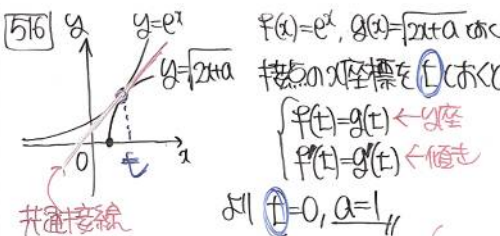 516
y
y=e^x
y=√2x+a
0
t
x
共通接線
f(x)=e^x, g(x)=√2x+a とおく
接点のx座標を t とおくと
f(t)=g(t) ←y座
f'(t)=g'(t) ←傾き
より t=0, a=1